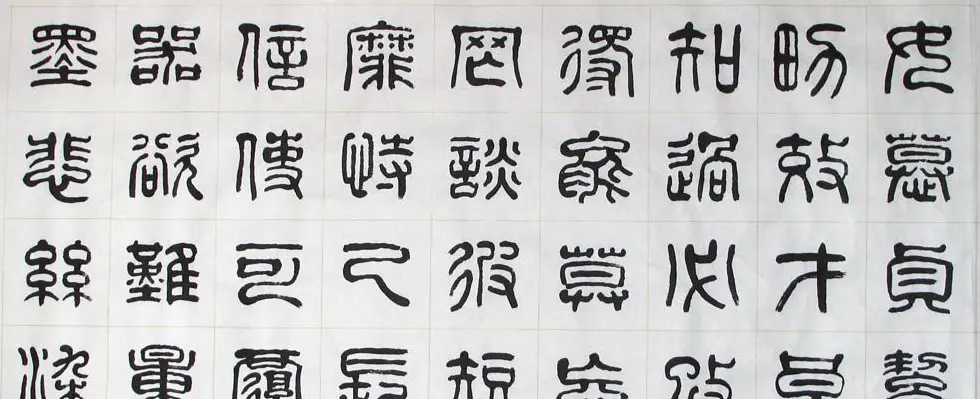 女慕貞絜
男效才良
知過必改
得能莫忘
罔談彼短
靡恃己長
信使可覆
器欲難量
墨悲絲染